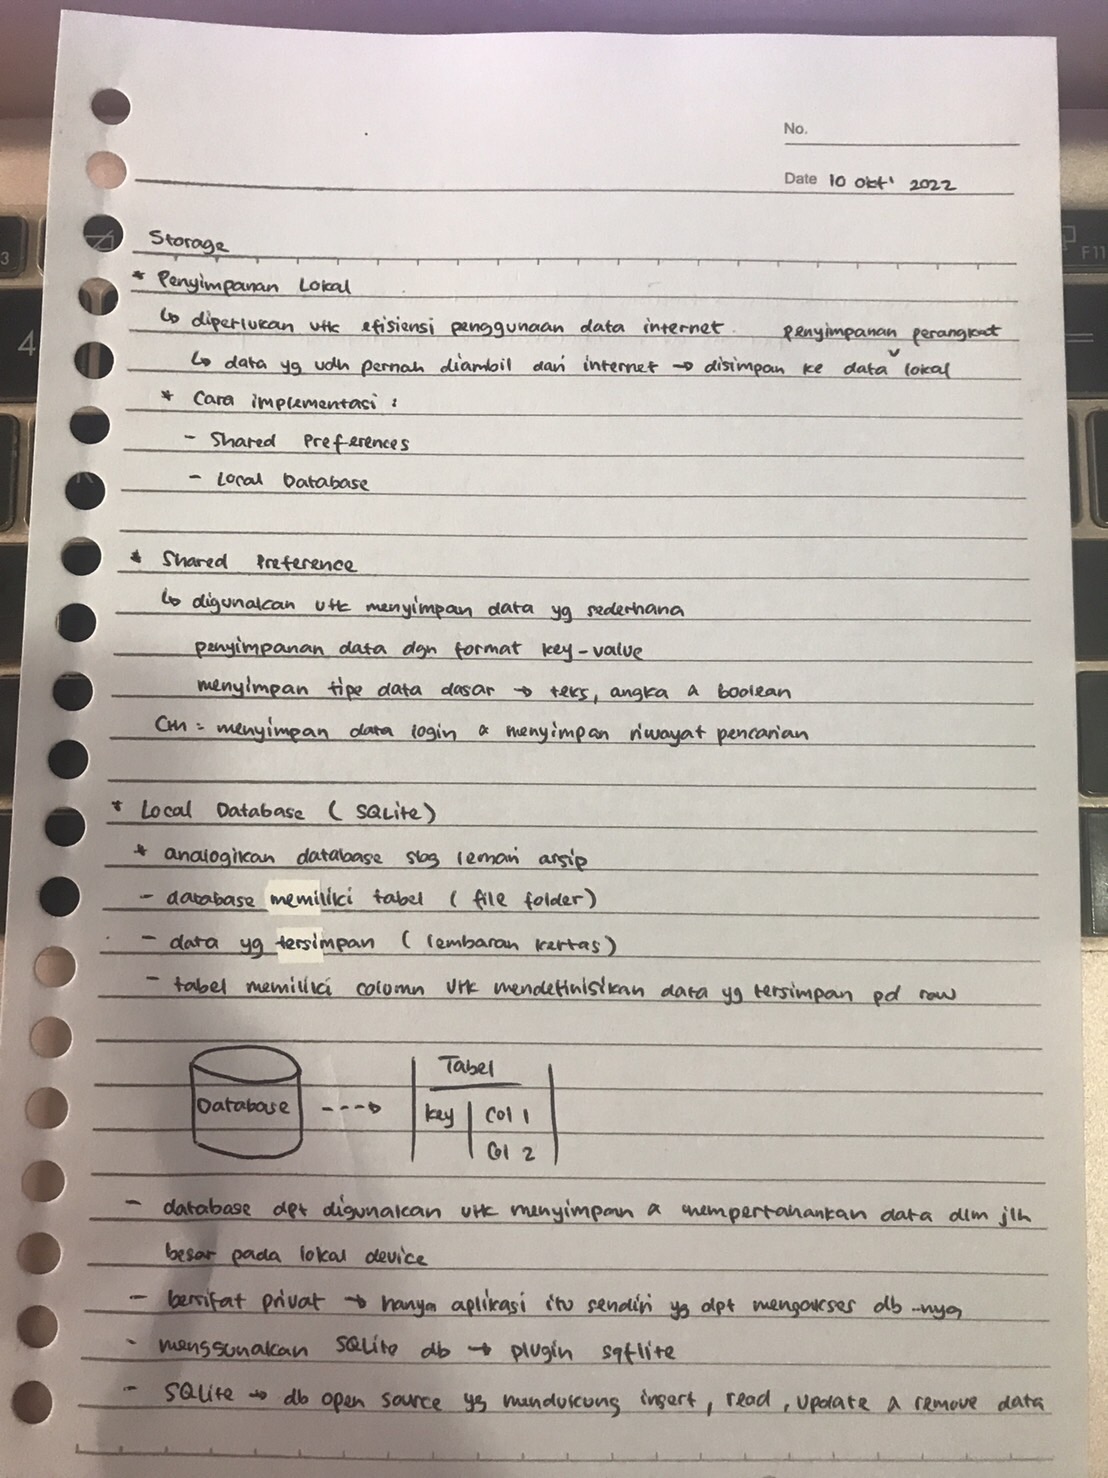 No.
Date 10 Okt' 2022
Storage
* Penyimpanan Lokal
↳ diperlukan utk efisiensi penggunaan data internet penyimpanan perangkat
↳ data yg udh pernah diambil dari internet → disimpan ke data ˅ lokal
* Cara implementasi :
- Shared Preferences
- Local Database
* Shared Preference
↳ digunakan utk menyimpan data yg sederhana
penyimpanan data dgn format key-value
menyimpan tipe data dasar → teks, angka & boolean
Cth = menyimpan data login & menyimpan riwayat pencarian
* Local Database ( SQLite)
* analogikan database sbg lemari arsip
- database memiliki tabel ( file folder)
- data yg tersimpan ( lembaran kertas)
- tabel memiliki column utk mendefinisikan data yg tersimpan pd row
Database ---→ Tabel
key Col 1
Col 2
- database dpt digunakan utk menyimpan & mempertahankan data dlm jlh
besar pada lokal device
- bersifat privat → hanya aplikasi itu sendiri yg dpt mengakses db-nya
- menggunakan SQLite db → plugin sqflite
- SQLite → db open source yg mendukung insert, read, update & remove data
F11
4
3